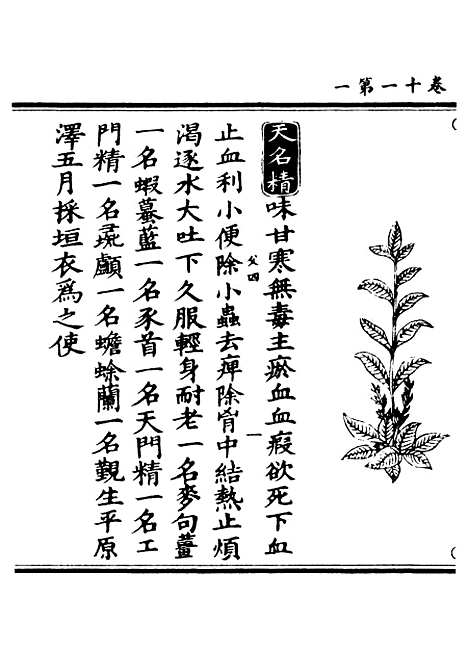 卷十一第一
天名精味甘寒無毒主瘀血血瘕欲死下血
止血利小便除小蟲去痺除胷中結熱止煩
渴逐水大吐下久服輕身耐老一名麥句薑
一名蝦蟇藍一名豕首一名天門精一名𤣥
門精一名彘顱一名蟾蜍蘭一名覲生平原
澤五月採垣衣爲之使